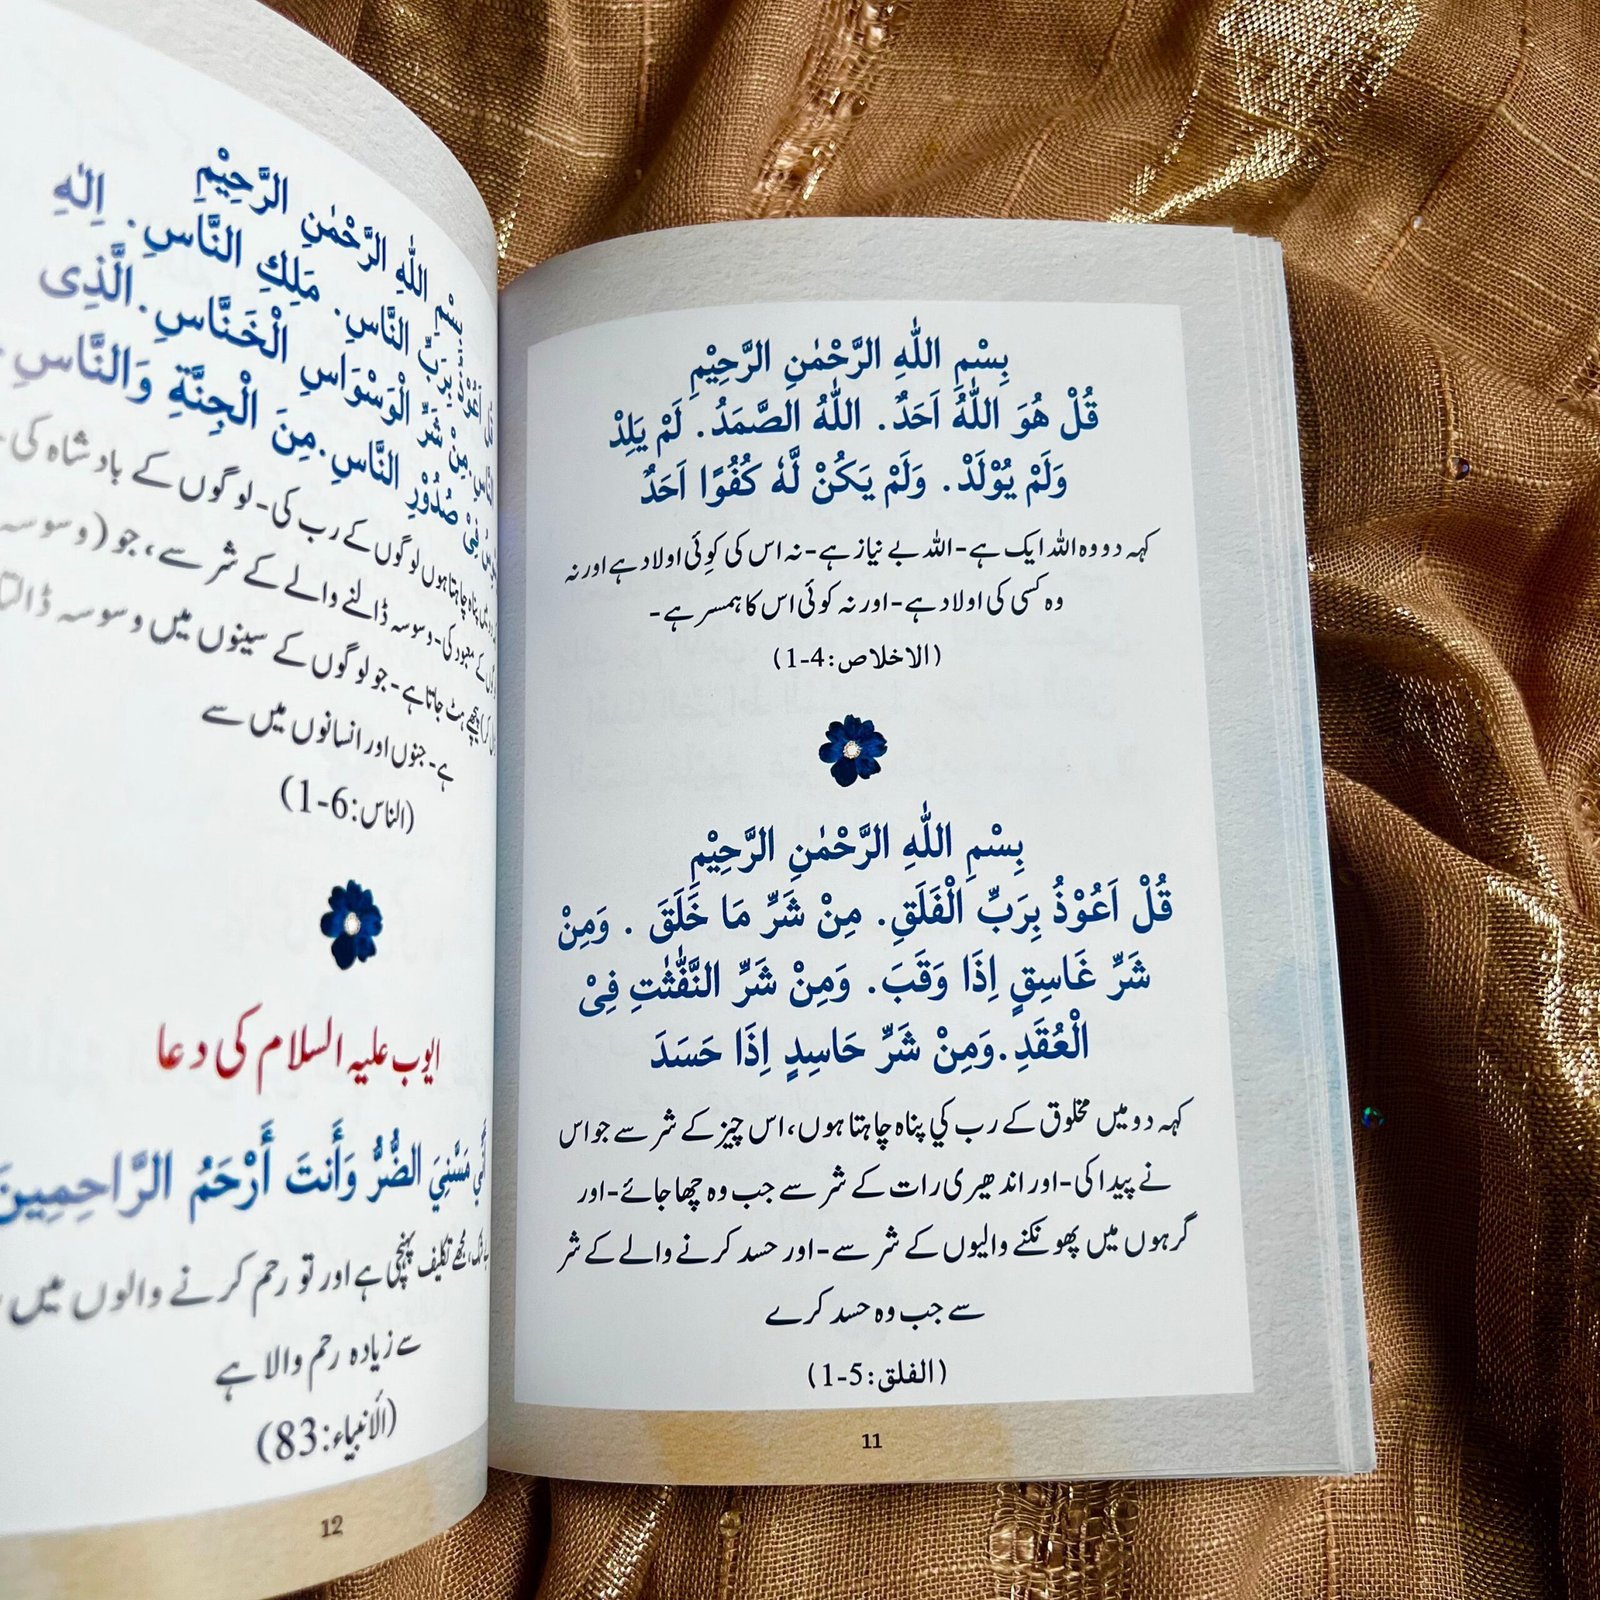 بِسْمِ اللّٰهِ الرَّحْمٰنِ الرَّحِيْمِ
قُلْ هُوَ اللّٰهُ اَحَدٌ. اللّٰهُ الصَّمَدُ. لَمْ يَلِدْ
وَلَمْ يُوْلَدْ. وَلَمْ يَكُنْ لَّهٗ كُفُوًا اَحَدٌ
کہہ دو وہ اللہ ایک ہے-اللہ بے نیاز ہے-نہ اس کی کوئی اولاد ہے اور نہ
وہ کسی کی اولاد ہے-اور نہ کوئی اس کا ہمسر ہے-
(الاخلاص:4-1)
بِسْمِ اللّٰهِ الرَّحْمٰنِ الرَّحِيْمِ
قُلْ اَعُوْذُ بِرَبِّ الْفَلَقِ. مِنْ شَرِّ مَا خَلَقَ . وَمِنْ
شَرِّ غَاسِقٍ اِذَا وَقَبَ. وَمِنْ شَرِّ النَّفّٰثٰتِ فِىْ
الْعُقَدِ.وَمِنْ شَرِّ حَاسِدٍ اِذَا حَسَدَ
کہہ دو میں مخلوق کے رب کي پناہ چاہتا ہوں،اس چیز کے شر سے جو اس
نے پیدا کی-اور اندھیری رات کے شر سے جب وہ چھا جائے-اور
گرہوں میں پھونکنے والیوں کے شر سے-اور حسد کرنے والے کے شر
سے جب وہ حسد کرے
(الفلق:5-1)
11
بِسْمِ اللّٰهِ الرَّحْمٰنِ الرَّحِيْمِ
اَعُوْذُ بِرَبِّ النَّاسِ. مَلِكِ النَّاسِ. اِلٰهِ
النَّاسِ.مِنْ شَرِّ الْوَسْوَاسِ الْخَنَّاسِ.الَّذِى
فِىْ صُدُوْرِ النَّاسِ.مِنَ الْجِنَّةِ وَالنَّاسِ.
پناہ چاہتا ہوں لوگوں کے رب کی-لوگوں کے بادشاہ کی-
کے معبود کی-وسوسہ ڈالنے والے کے شر سے،جو (وسوسہ
پیچھے ہٹ جاتا ہے-جو لوگوں کے سینوں میں وسوسہ ڈالتا
ہے-جنوں اور انسانوں میں سے
(الناس:6-1)
ایوب علیہ السلام کی دعا
مَسَّنِيَ الضُّرُّ وَأَنتَ أَرْحَمُ الرَّاحِمِينَ
مجھے تکلیف پہنچی ہے اور تو رحم کرنے والوں میں
سے زیادہ رحم والا ہے
(الَانبیاء:83)
12